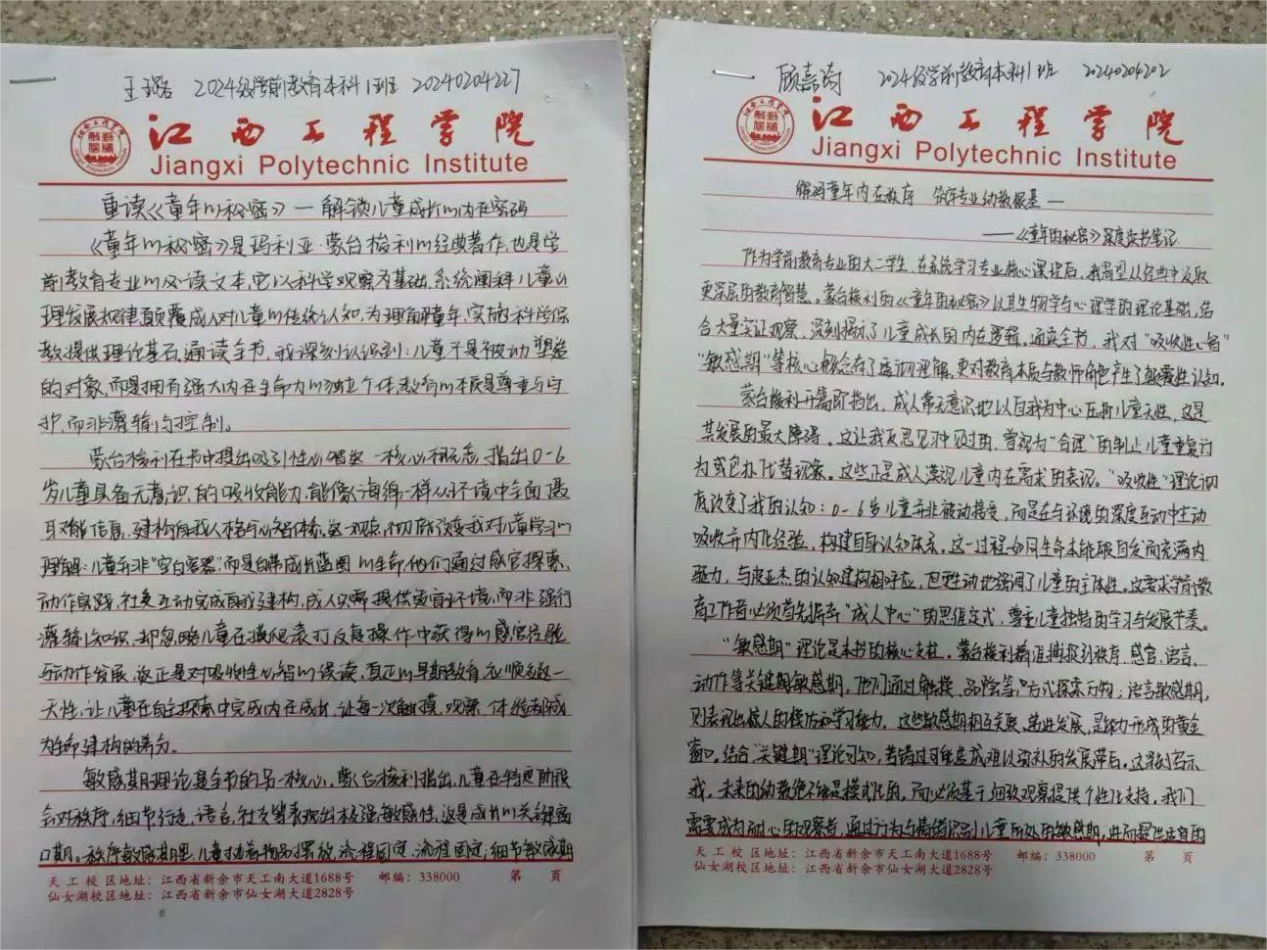 王璐 2024级学前教育本科1班 20240204227
江西工程学院
Jiangxi Polytechnic Institute
重读《童年的秘密》—解锁儿童成长的内在密码
《童年的秘密》是玛利亚·蒙台梭利的经典著作,也是学
前教育专业的必读文本,它以科学观察为基础,系统阐释儿童心
理发展规律,颠覆成人对儿童的传统认知,为理解童年,实施科学保
教提供理论基石,通读全书,我深刻认识到:儿童不是被动塑造
的对象,而是拥有强大内在生命力的独立个体,教育的本质是尊重与守
护,而非灌输与控制。
蒙台梭利在书中提出吸引性心智这一核心概念,指出0-6
岁儿童具备无意识的吸收能力,能像海绵一样从环境中全面摄
取信息,建构自我人格与心智体系,这一观点,彻底改变我对儿童学习的
理解:儿童并非“空白容器”而是自带成长蓝图的生命,他们通过感官探索,
动作实践,社交互动完成自我建构,成人只需提供适宜环境,而非强行
灌输知识,却忽略儿童在摸爬滚打反复操作中获得的感官经验
与动作发展,这正是对吸收性心智的误读,真正的早期教育应顺应这一
天性,让儿童在自主探索中完成内在成长,让每一次触摸,观察,体验都成
为生命建构的养分。
敏感期理论是全书的另一核心,蒙台梭利指出,儿童在特定阶段
会对秩序,细节,行走,语言,社交等表现出极强敏感性,这是成长的关键窗
口期。秩序敏感期里,儿童执着物品摆放,流程固定,流程固定,细节敏感期
天工校区地址:江西省新余市天工南大道1688号 邮编:338000 第 页
仙女湖校区地址:江西省新余市仙女湖大道2828号
顾嘉 2024级学前教育本科1班 20240204202
江西工程学院
Jiangxi Polytechnic Institute
解码童年内在秩序 筑牢专业幼教根基—
——《童年的秘密》深度读书笔记
作为学前教育专业的大二学生,在系统学习专业核心课程后,我渴望从经典中汲取
更深层的教育智慧。蒙台梭利的《童年的秘密》以其生物学与心理学的理论基础,结
合大量实证观察,深刻揭示了儿童成长的内在逻辑,通读全书,我对“吸收性心智”
“敏感期”等核心概念有了透彻理解,更对教育本质与教师角色产生了颠覆性认知。
蒙台梭利开篇即指出,成人常无意识地以自我为中心压抑儿童天性,这是
其发展的最大障碍。这让我反思见习中见过的,曾视为“合理”的制止儿童重复行
为或包办代替现象。这些正是成人漠视儿童内在需求的表现。“吸收性”理论彻
底改变了我的认知:0-6岁儿童并非被动接受,而是在与环境的深度互动中主动
吸收并内化经验,构建自身认知体系。这一过程如同生命本能般自发而充满内
驱力,与皮亚杰的认知建构相呼应,但更生动地强调了儿童的主体性。这要求学前教
育工作者必须首先摒弃“成人中心”的思维定式,尊重儿童独特的学习与发展节奏。
“敏感期”理论是本书的核心支柱。蒙台梭利精准捕捉到秩序、感官、语言、
动作等关键期敏感期,他们通过触摸、品尝等,方式探索万物;语言敏感期,
则表现出惊人的模仿和学习能力。这些敏感期相互关联,递进发展,是能力形成的黄金
窗口。结合“关键期”理论可知,若错过可能造成难以弥补的发展滞后。这深刻启示
我,未来的幼教绝不能是模式化的,而必须基于细致观察提供个性化支持,我们
需要成为耐心的观察者,通过行为与情绪识别儿童所处的敏感期,进而提供适宜的
天工校区地址:江西省新余市天工南大道1688号 邮编:338000 第 页
仙女湖校区地址:江西省新余市仙女湖大道2828号